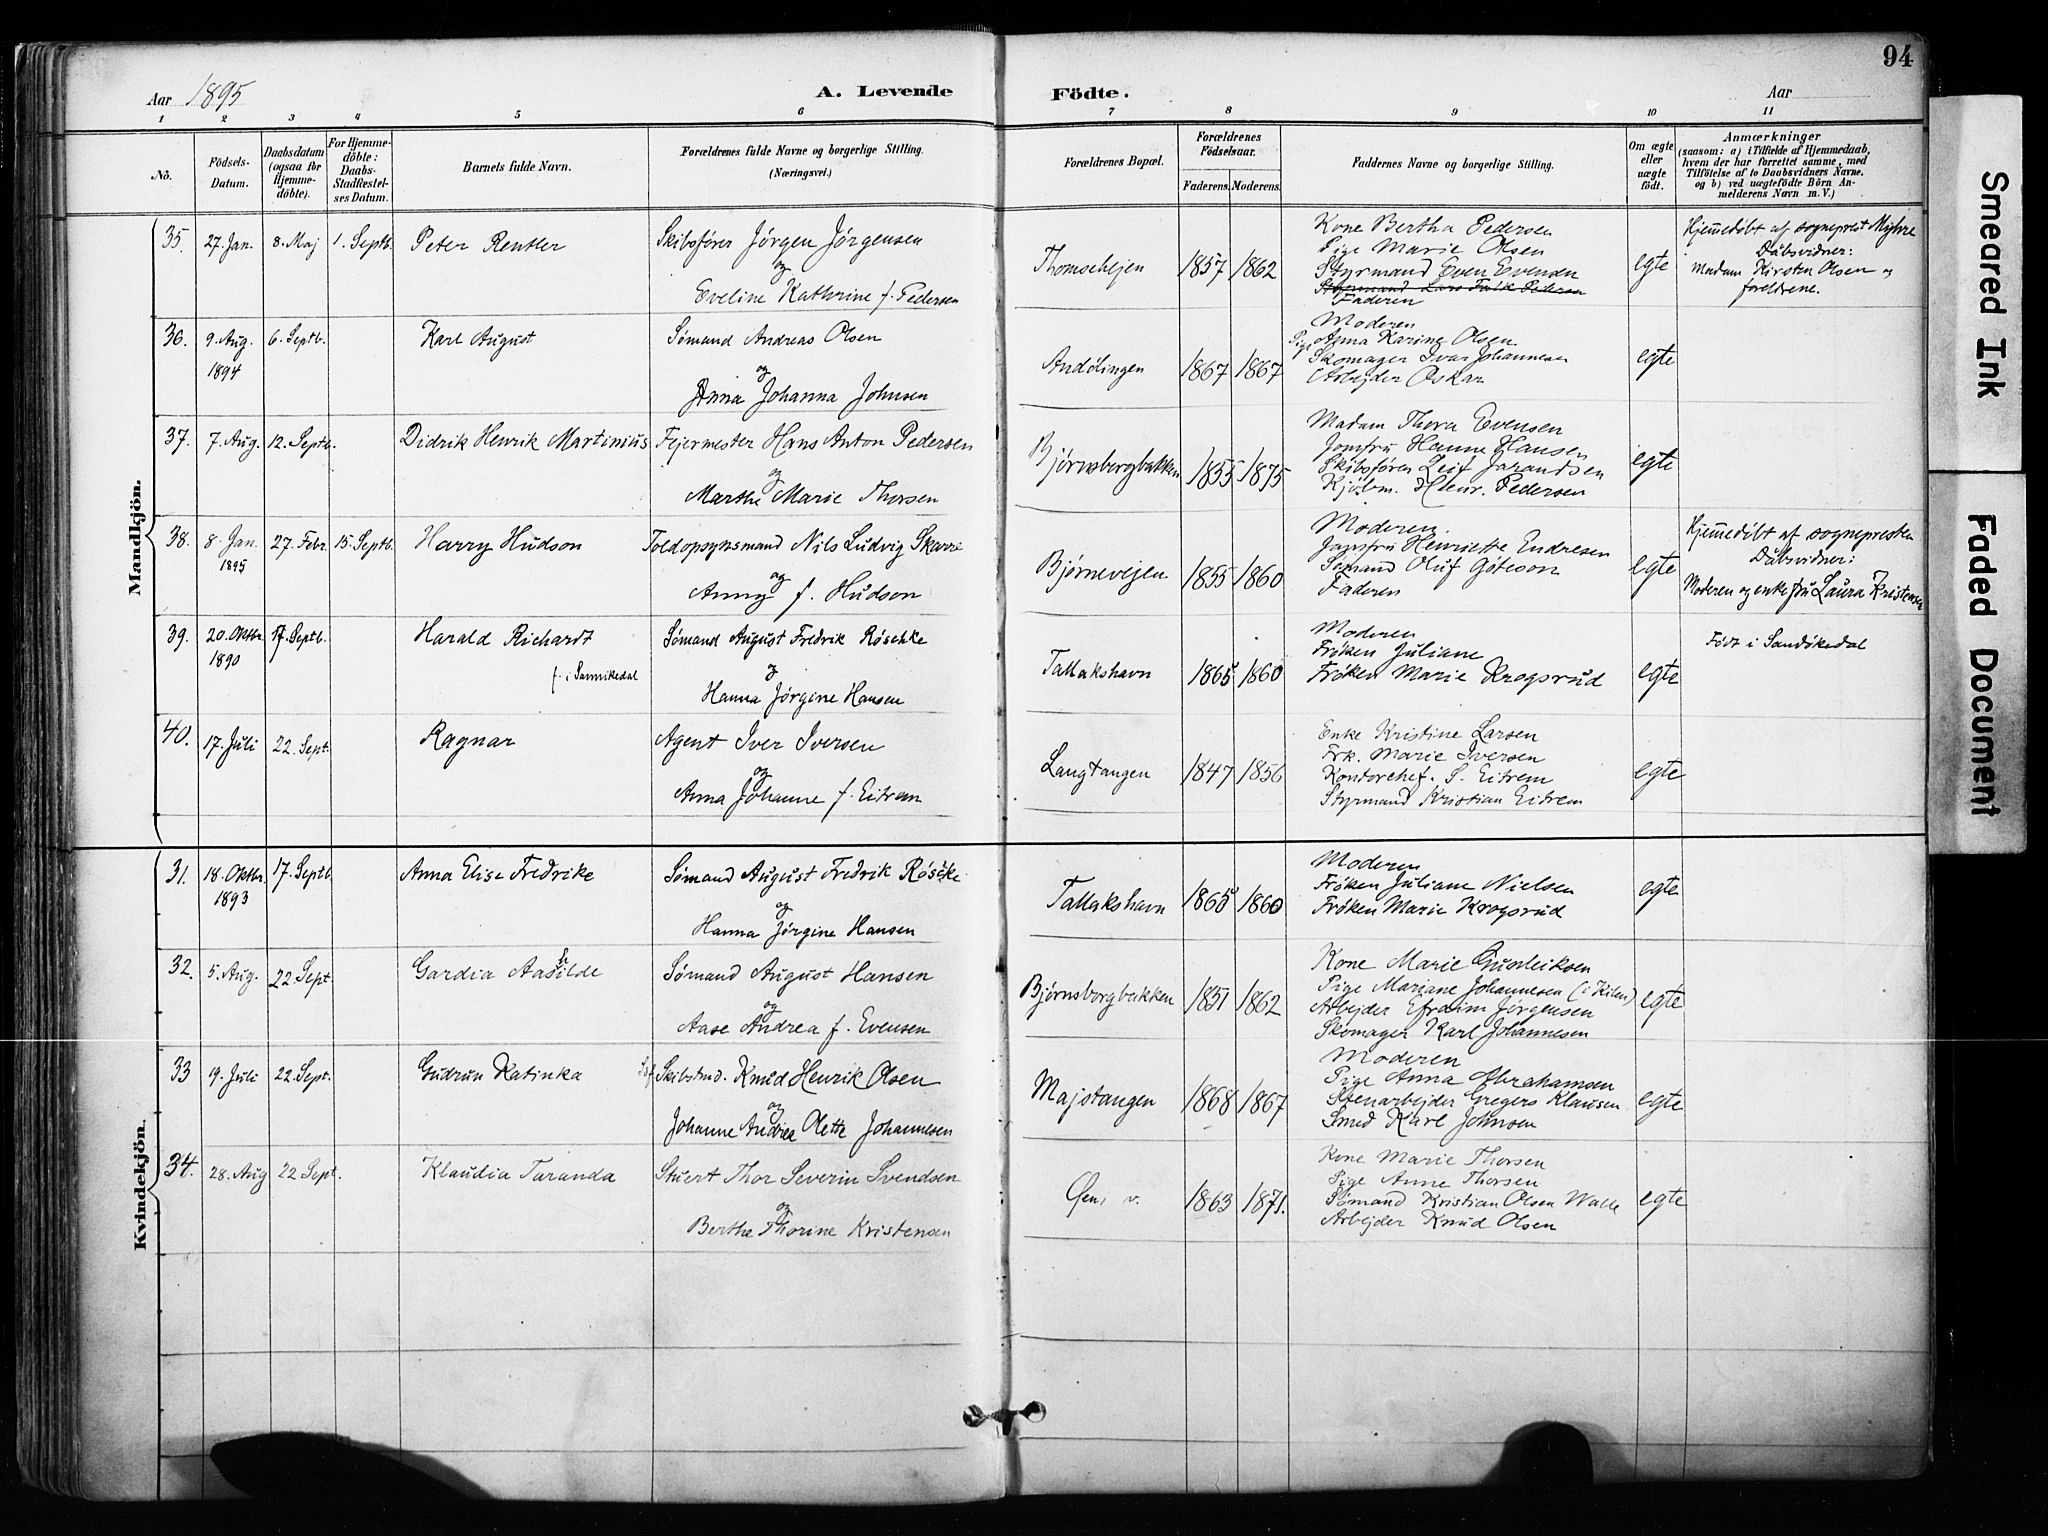 94
Aar 1895
A. Levende Födte.
Aar
1 2 3 4 5 6 7 8 9 10 11
No.
Födsels-Datum.
Daabsdatum (ogsaa for Hjemme-döbte).
For Hjemme-döbte: Daabs-Stadfæstel-ses Datum.
Barnets fulde Navn.
Forældrenes fulde Navne og borgerlige Stilling.
(Næringsvei.)
Forældrenes Bopæl.
Forældrenes Födselsaar.
Faderens. Moderens.
Faddernes Navne og borgerlige Stilling.
Om ægte eller uægte födt.
Anmærkninger
(saasom: a) i Tilfælde af Hjemmedaab,
hvem der har forrettet samme, med
Tilföielse af to Daabsvidners Navne,
og b) ved uægtefödte Börn An-
melderens Navn m.V.)
Mandkjön.
35. 27. Jan. 8. Maj 1. Septb. Peter Rentler
Skibsfører Jørgen Jørgensen
og
Eveline Kathrine f. Pedersen
Thomsehejen 1857 1862
Kone Bertha Pedersen
Pige Marie Olsen
Styrmand Even Evensen
Styrmand Lars Falk Pedersen
Faderen
egte
Hjemedøbt af sogneprest Myhre
Dåbsvidner:
Madam Kirsten Olsen og
foreldrene.
36. 9. Aug. 1894 6. Septb. Karl August
Sømand Andreas Olsen
og
Anna Johanna Johnsen
Andölingen 1867 1867
Moderen
Pige Anna Karine Olsen
Skomager Ivar Johannesen
Arbejder Oskar
egte
37. 7. Aug. 12. Septb. Didrik Henrik Martinius
Fejermester Hans Anton Pedersen
og
Marthe Marie Thorsen
Bjørnsborgbakken 1855 1875
Madam Thora Evensen
Jomfru Hanne Hansen
Skibsfören Leif Jarandsen
Kjøbm. Henr. Pedersen
egte
38. 8. Jan. 1895 27. Febr. 15. Septb. Harry Hudson
Toldopsynsmand Nils Ludvig Skarre
og
Anny f. Hudson
Bjørnevejen 1855 1860
Moderen.
Jomfru Henriette Endresen
Sømand Oluf Göteson
Faderen
egte
Hjemedöbt af sognepresten
Dåbsvidner:
Moderen og enkefru Laura Kristensen
39. 20. Oktbr. 1890 17. Septb. Harald Richardt
f. i Sannikedal
Sømand August Fredrik Röschke
og
Hanna Jørgine Hansen
Tallakshavn 1865 1860
Moderen
Fröken Juliane
Fröken Marie Krogsrud
egte
Født i Sandökedal
40. 17. Juli 22. Sept. Ragnar
Agent Iver Iversen
og
Anna Johanne f. Eitrem
Langtangen 1847 1856
Enke Kristine Larsen
Frk. Marie Iversen
Kontorchef. S. Eitrem
Styrmand Kristian Eitrem
egte
Kvindekjön.
31. 18. Oktbr. 1893 17. Septb. Anna Elise Fredrike
Sømand August Fredrik Röschke
og
Hanna Jörgine Hansen
Tallakshavn 1865 1860
Moderen
Fröken Juliane Nielsen
Fröken Marie Krogsrud
egte
32. 5. Aug. 22. Sept. Gardia Aashilde
Sømand August Hansen
og
Aase Andrea f. Evensen
Bjørnsborgbakken 1851 1862
Kone Marie Gunleiksen
Pige Mariane Johannesen (i Kilen)
Arbejder Efraim Jørgensen
Skomager Karl Johannesen
egte
33 19. Juli 22. Sept. Gudrun Katinka
Skibstmd. Knud Henrik Olsen
og
Johanne Andrea Olette Johannesen
Majstangen 1868 1867
Moderen
Pige Anna Abrahamsen
Stenarbejder Gregers Klausen
Smed Karl Johnsen
egte
34. 28. Aug 22 Sept. Klaudia Taranda
Stuert Thor Severin Svendsen
og
Berthe Thorine Kristensen
Øen, v. 1863 1871.
Kone Marie Thorsen
Pige Anne Thorsen
Sømand Kristian Olsen Walle
Arbejder Knud Olsen
egte
Smeared Ink
Faded Document